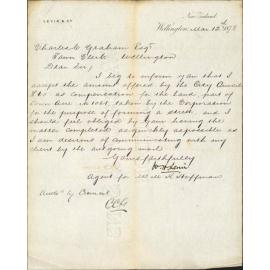 LEVIN & CO
New Zealand
Wellington, Mar 12th 1878
Charles C Graham Esqr
Town Clerk Wellington
Dear Sir,
I beg to inform you that I
accept the amount offered by the City Council
as compensation for the land, part of
Town acre No taken by the Corporation
for the purpose of forming a street, and I
should feel obliged by your having the
matter completed as quickly as possible as
I am desirous of communicating with my
client by the outgoing mail
Yours faithfully
W H Levin
Agent for Hoffman
by Council
CCG